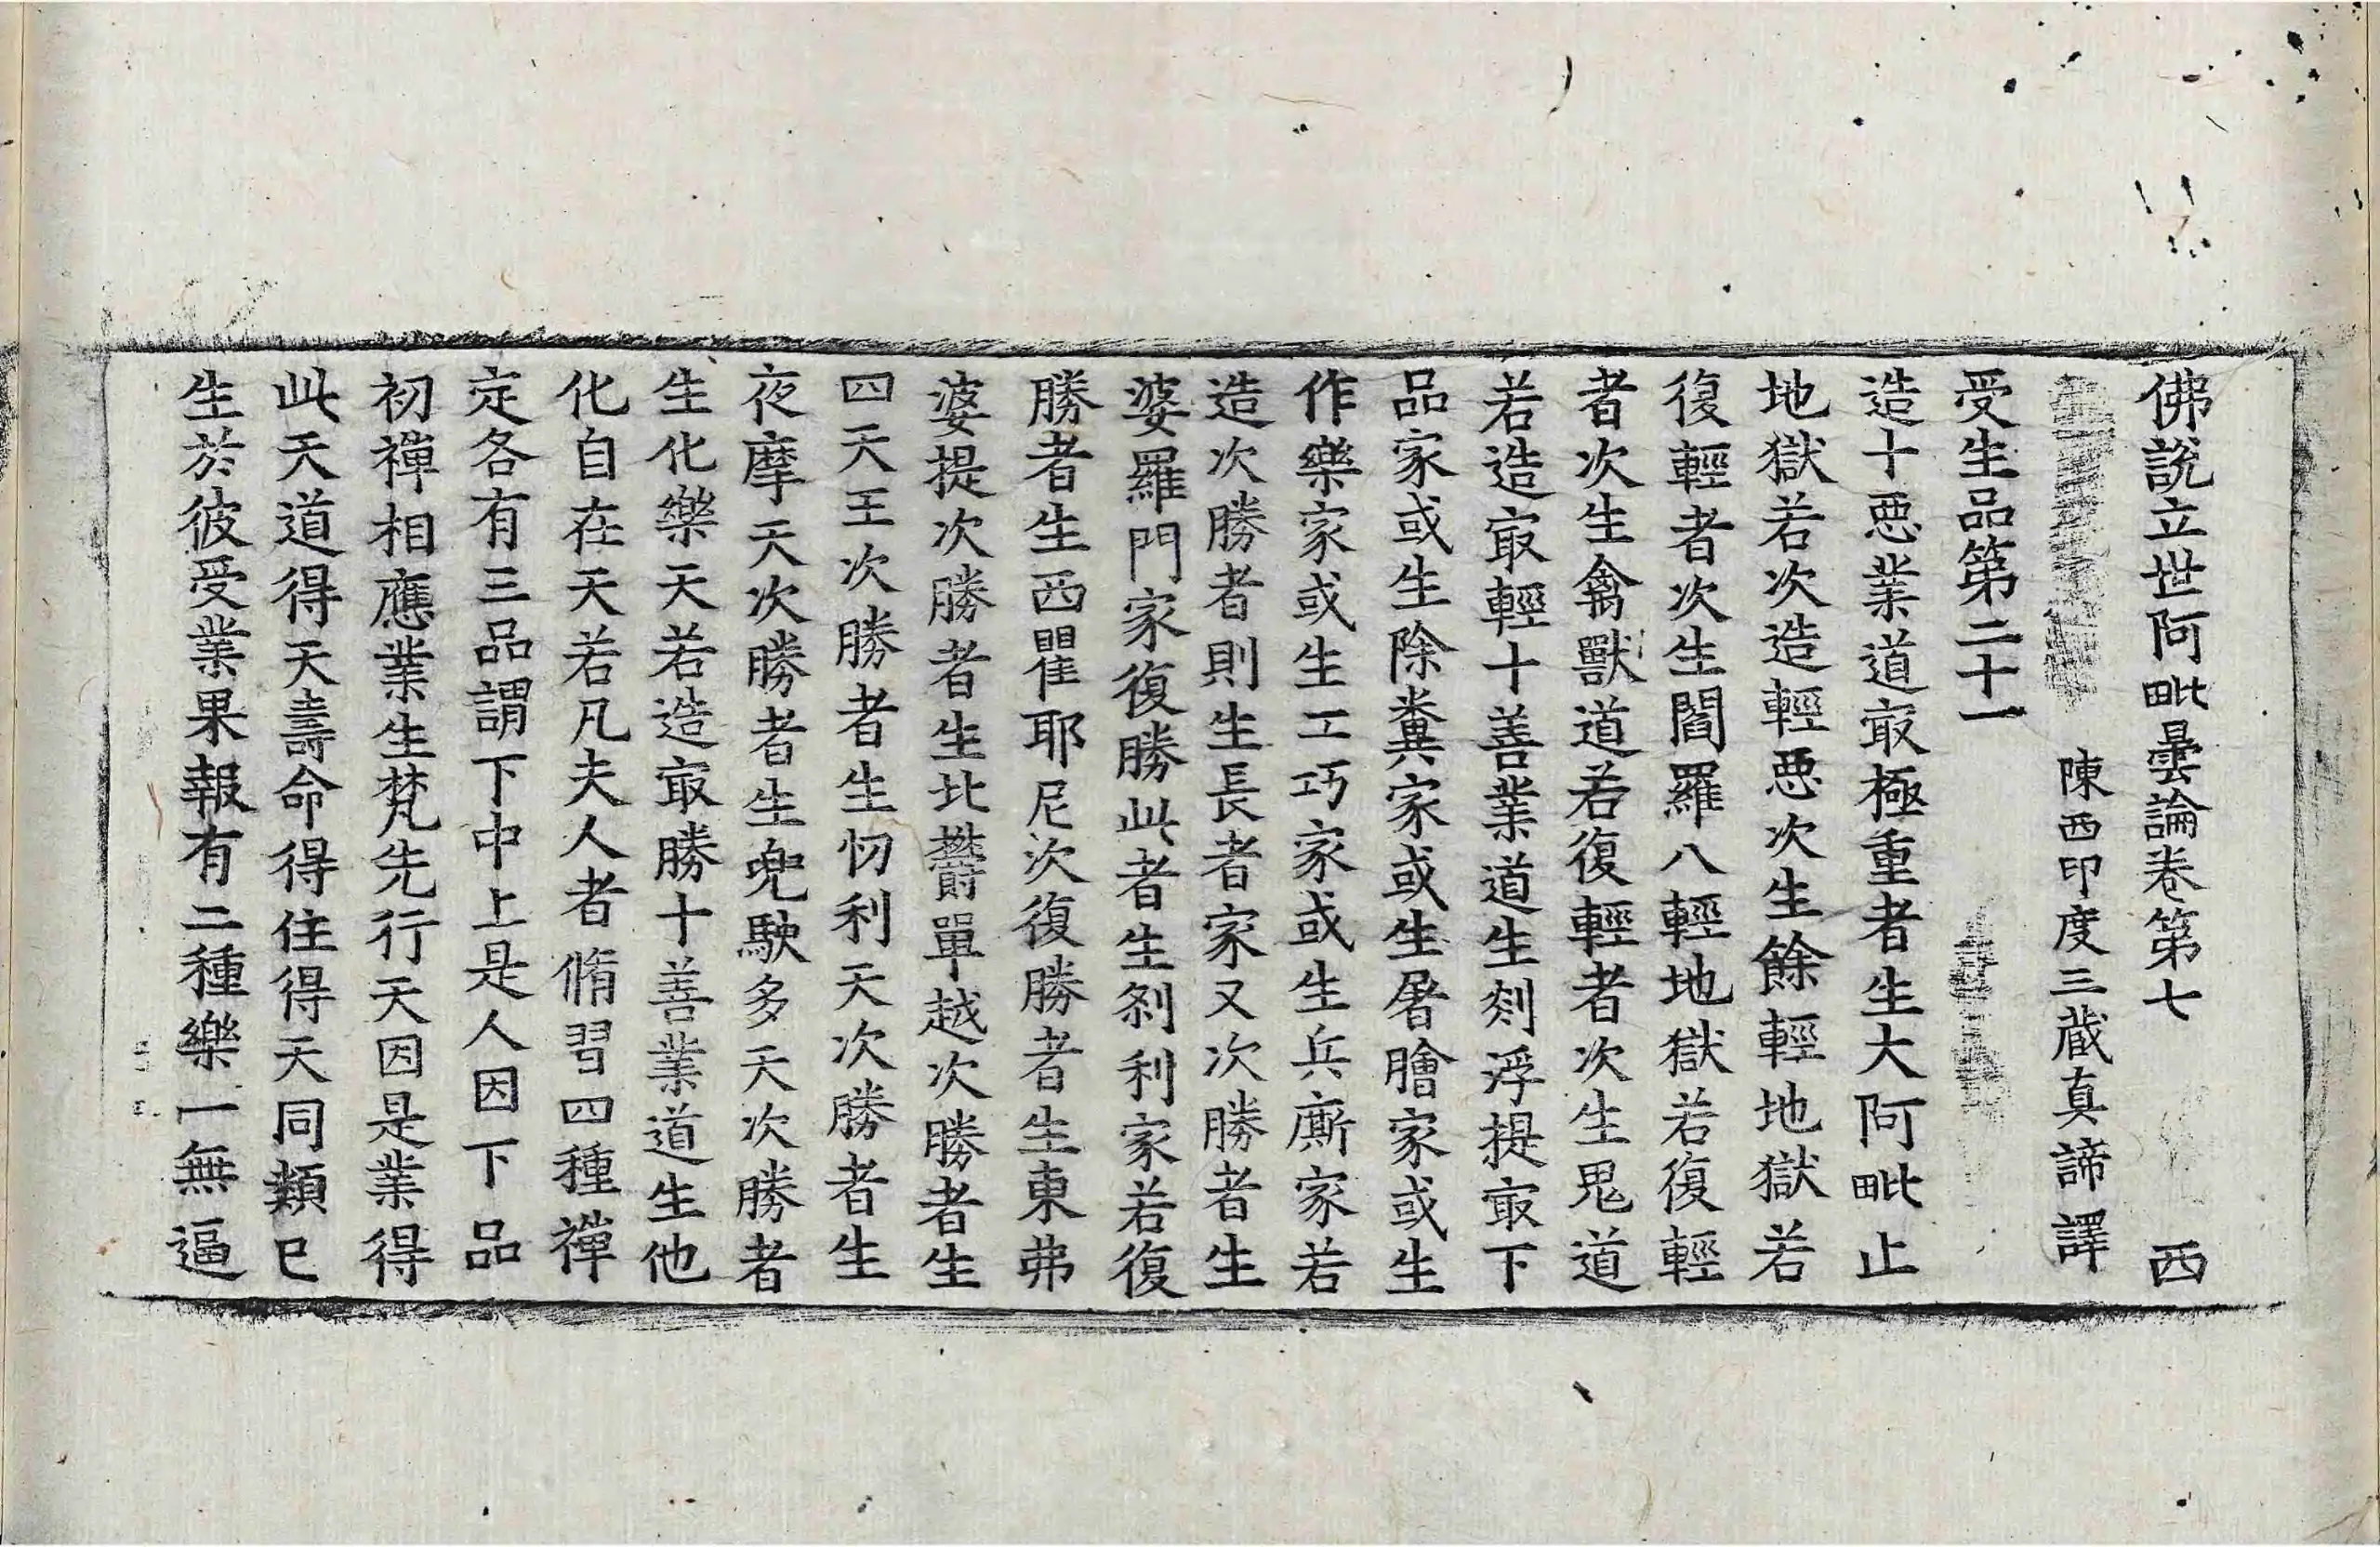 佛說立世阿毗曇論卷第七 西
陳西印度三藏真諦譯
受生品第二十一
造十惡業道㝡極重者生大阿毗止
地獄若次造輕惡次生餘輕地獄若
復輕者次生閻羅八輕地獄若復輕
者次生禽獸道若復輕者次生鬼道
若造㝡輕十善業道生剡浮提㝡下
品家或生除糞家或生屠膾家或生
作樂家或生工巧家或生兵廝家若
造次勝者則生長者家又次勝者生
婆羅門家復勝此者生剎利家若復
勝者生西瞿耶尼次復勝者生東弗
婆提次勝者生北欝單越次勝者生
四天王次勝者生忉利天次勝者生
夜摩天次勝者生兜駛多天次勝者
生化樂天若造㝡勝十善業道生他
化自在天若凡夫人者脩習四種禪
定各有三品謂下中上是人因下品
初禪相應業生梵先行天因是業得
此天道得天壽命得住得天同類已
生於彼受業果報有二種樂一無逼